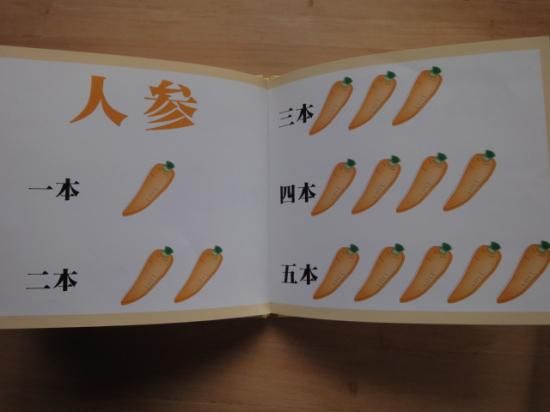 人参
一本
二本
三本
四本
五本